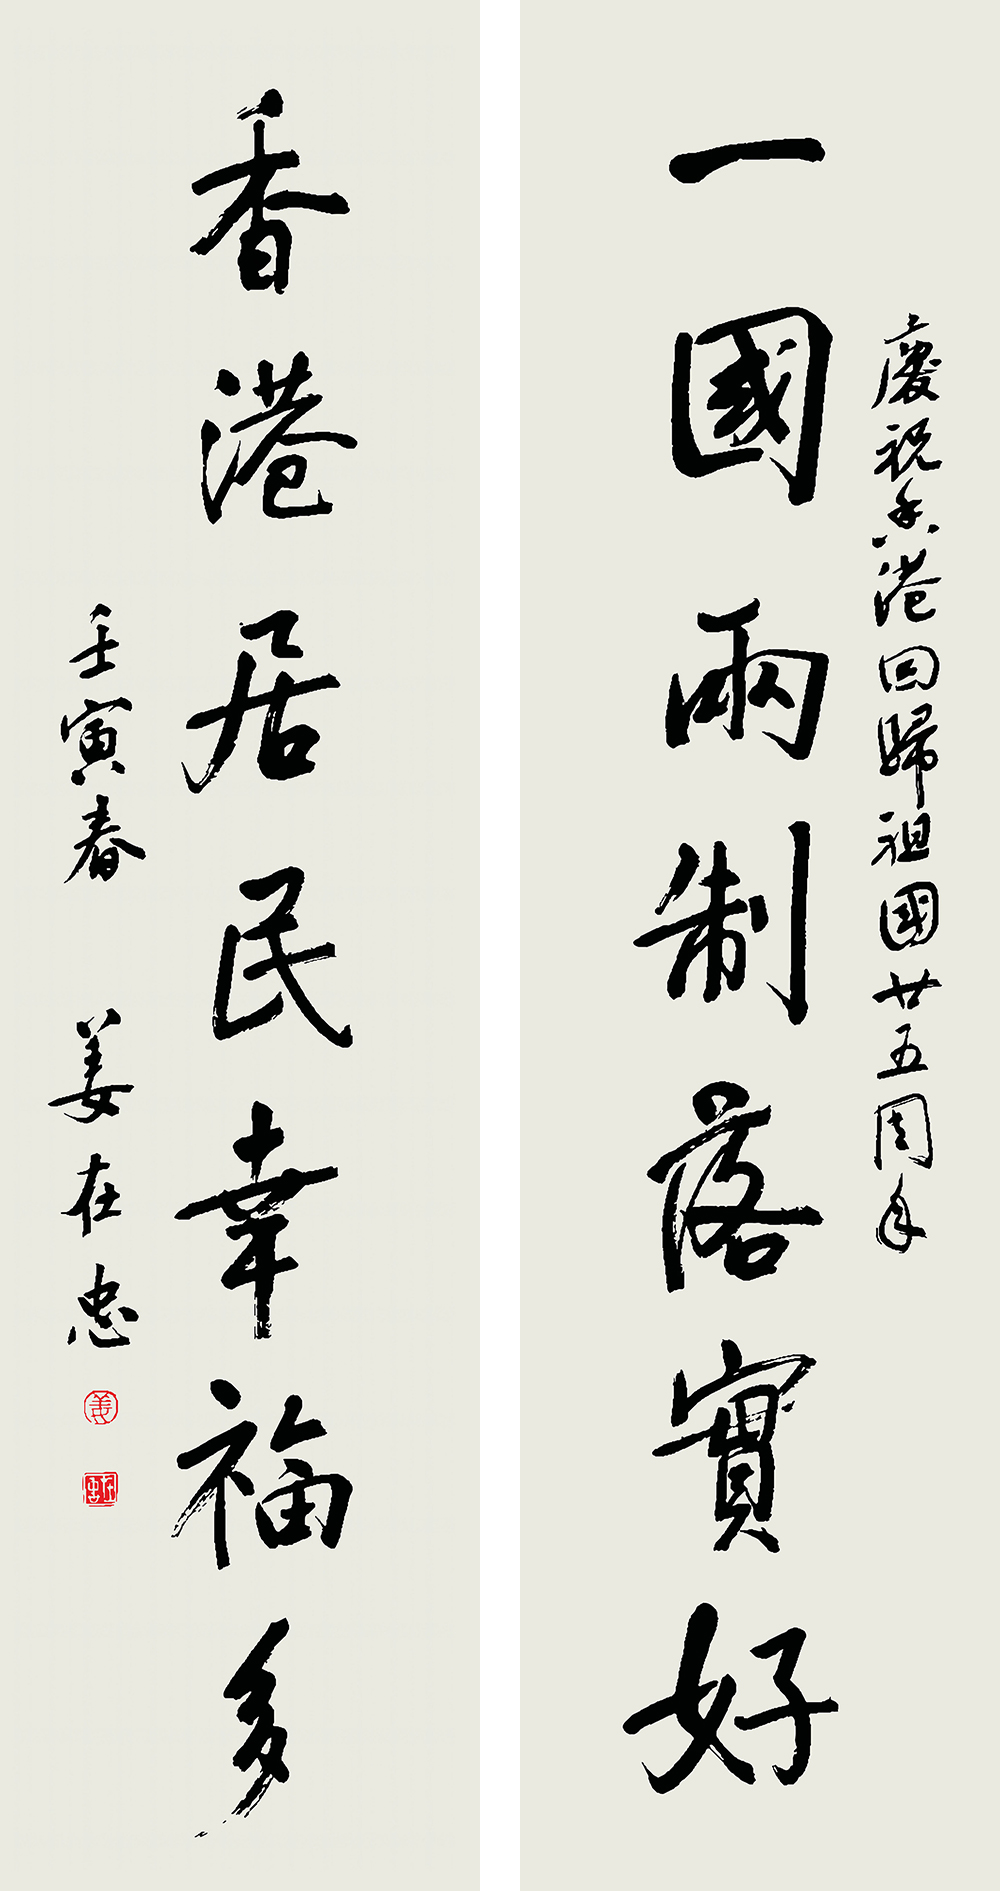 慶祝香港回歸祖國廿五周年
一國兩制落實好
香港居民幸福多
壬寅春 姜在忠
姜
在忠